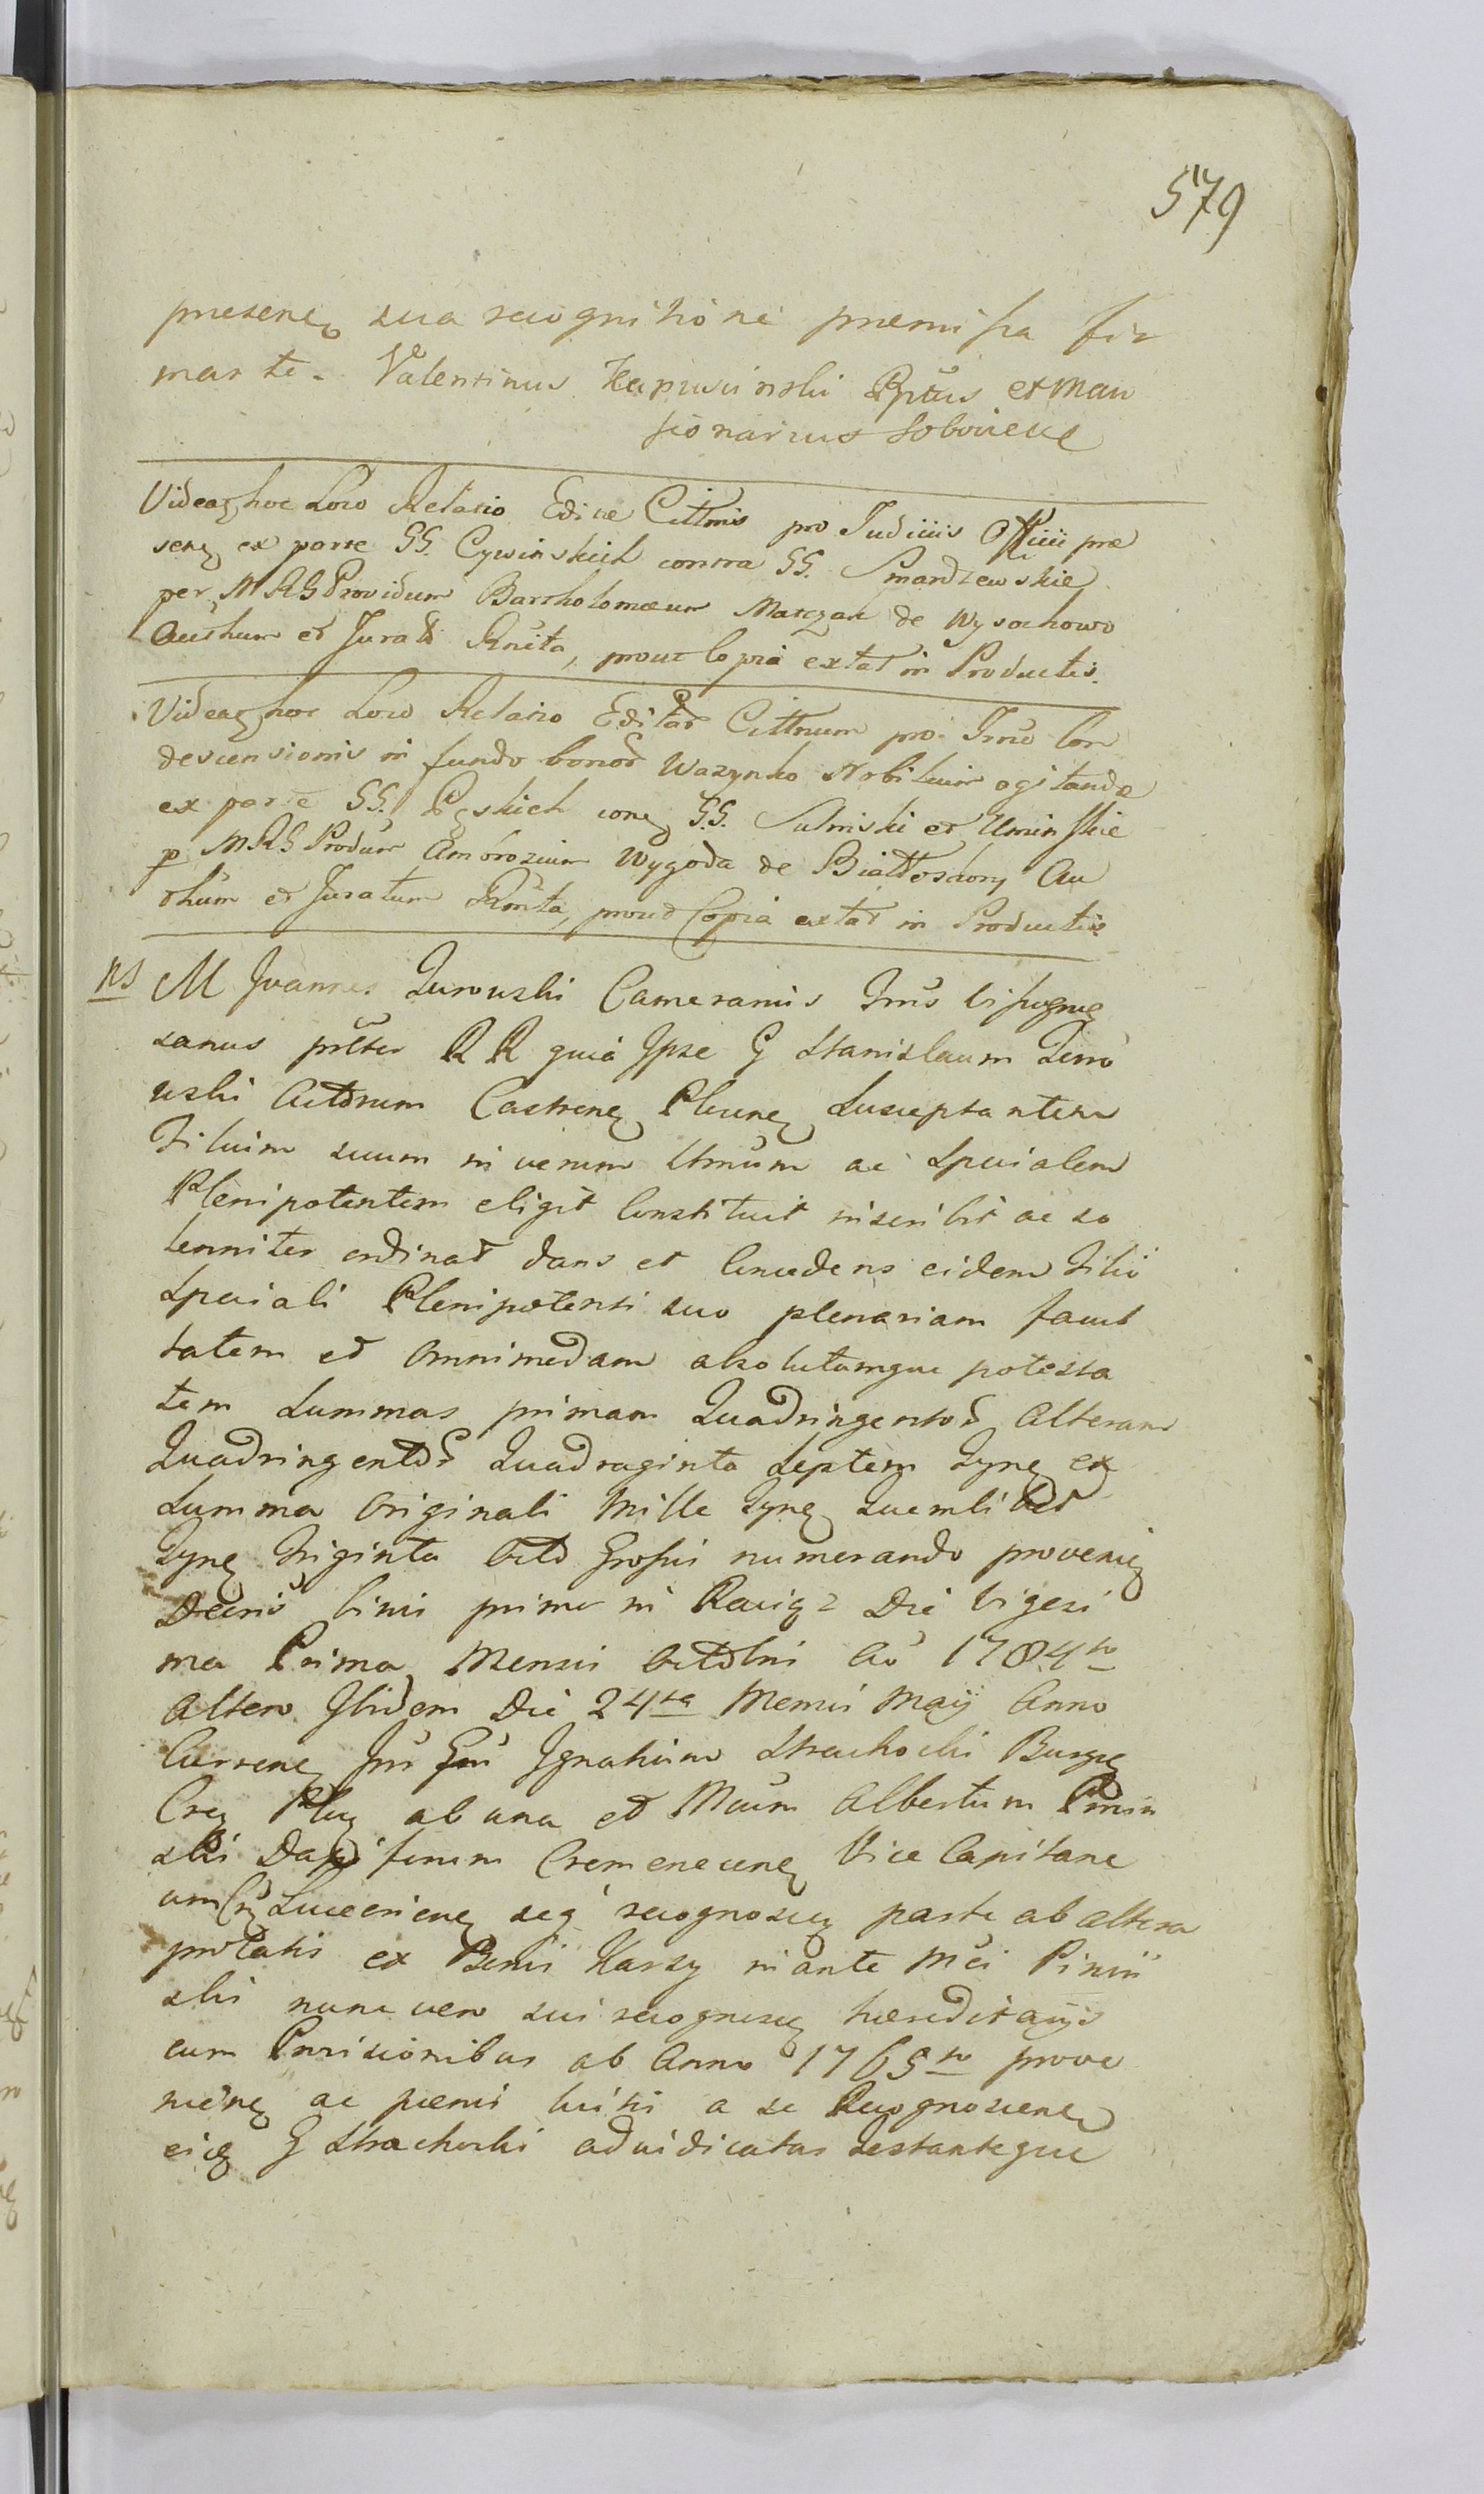 579
presenꝫ sua recognitione præmissa fir
mante. Valentinus Kapuscinski Pptus et Man
sionarius Sobociens
Videaꝫ hoc Loco Relatio Editæ Cittnis pro Judiciis Officii præ
senꝫ ex parte GG. Cywinskich contra GG. Smardzewskie
per MRG Providum Bartholomæum Matczak de Wysochowo
Authum et Jurat Rnita, prout Copia extat in Productis.
Videaꝫ hoc Loco Relatio Editar Cittnum pro Trno Con
descensionis in fundo bonor Wazynko Nobilium agitanda
ex parte GG. Pąskich conꝫ G.G. Sulmiski et Uminskie
p MRG Produm Ambrozium Wygoda de Białłoskory Au
thum et Juratum Rnita, prout Copia extat in Productis
ns M Joannes Zurowski Camerarius Trnis
sanus pnter RR quia Ipse G Stanislaum Zuro
wski Acttorum Castrenꝫ Plocenꝫ Susceptantem
Filium suum in verum Ltmum ac Specialem
Plenipotentem eligit Constituit inscribit ac so
lenniter ordinat dans et Concedens eidem Filio
Speciali Plenipotenti suo plenariam facul
tatem et omnimodam absolutamque potesta
tem Summas primam Quadringentor alteram
Quadringentor Quadraginta Septem Zynꝫ ex
Summa Originali Mille Zynꝫ Quemlibet
Zynꝫ Triginta Octo Grossis numerando provenꝫ
Decris binis primo in Raciąz Die Vigesi
ma Prima Mensis Octobris Ao 1784to
altero Ibidem Die 24ta Mensis Maij Anno
Currenꝫ Int Gsu Ignatium Strachocki Burgꝫ
Crꝫ Plcꝫ ab una et Mcum Albertum Pinin
ski Dapiferum Cremenecenꝫ Vice Capitane
um Luceorienꝫ seq recognoscꝫ parte ab altera
prolatis ex Bonis Karsy in ante Mci Pinin
ski nunc vero sui recognoscꝫ hæreditarijs
cum Provisionibus ab Anno 1765to prove
nienꝫ ac pænis luitis a se Recognoscenꝫ
eidꝫ G Strachocki adiudicatas Restantesque